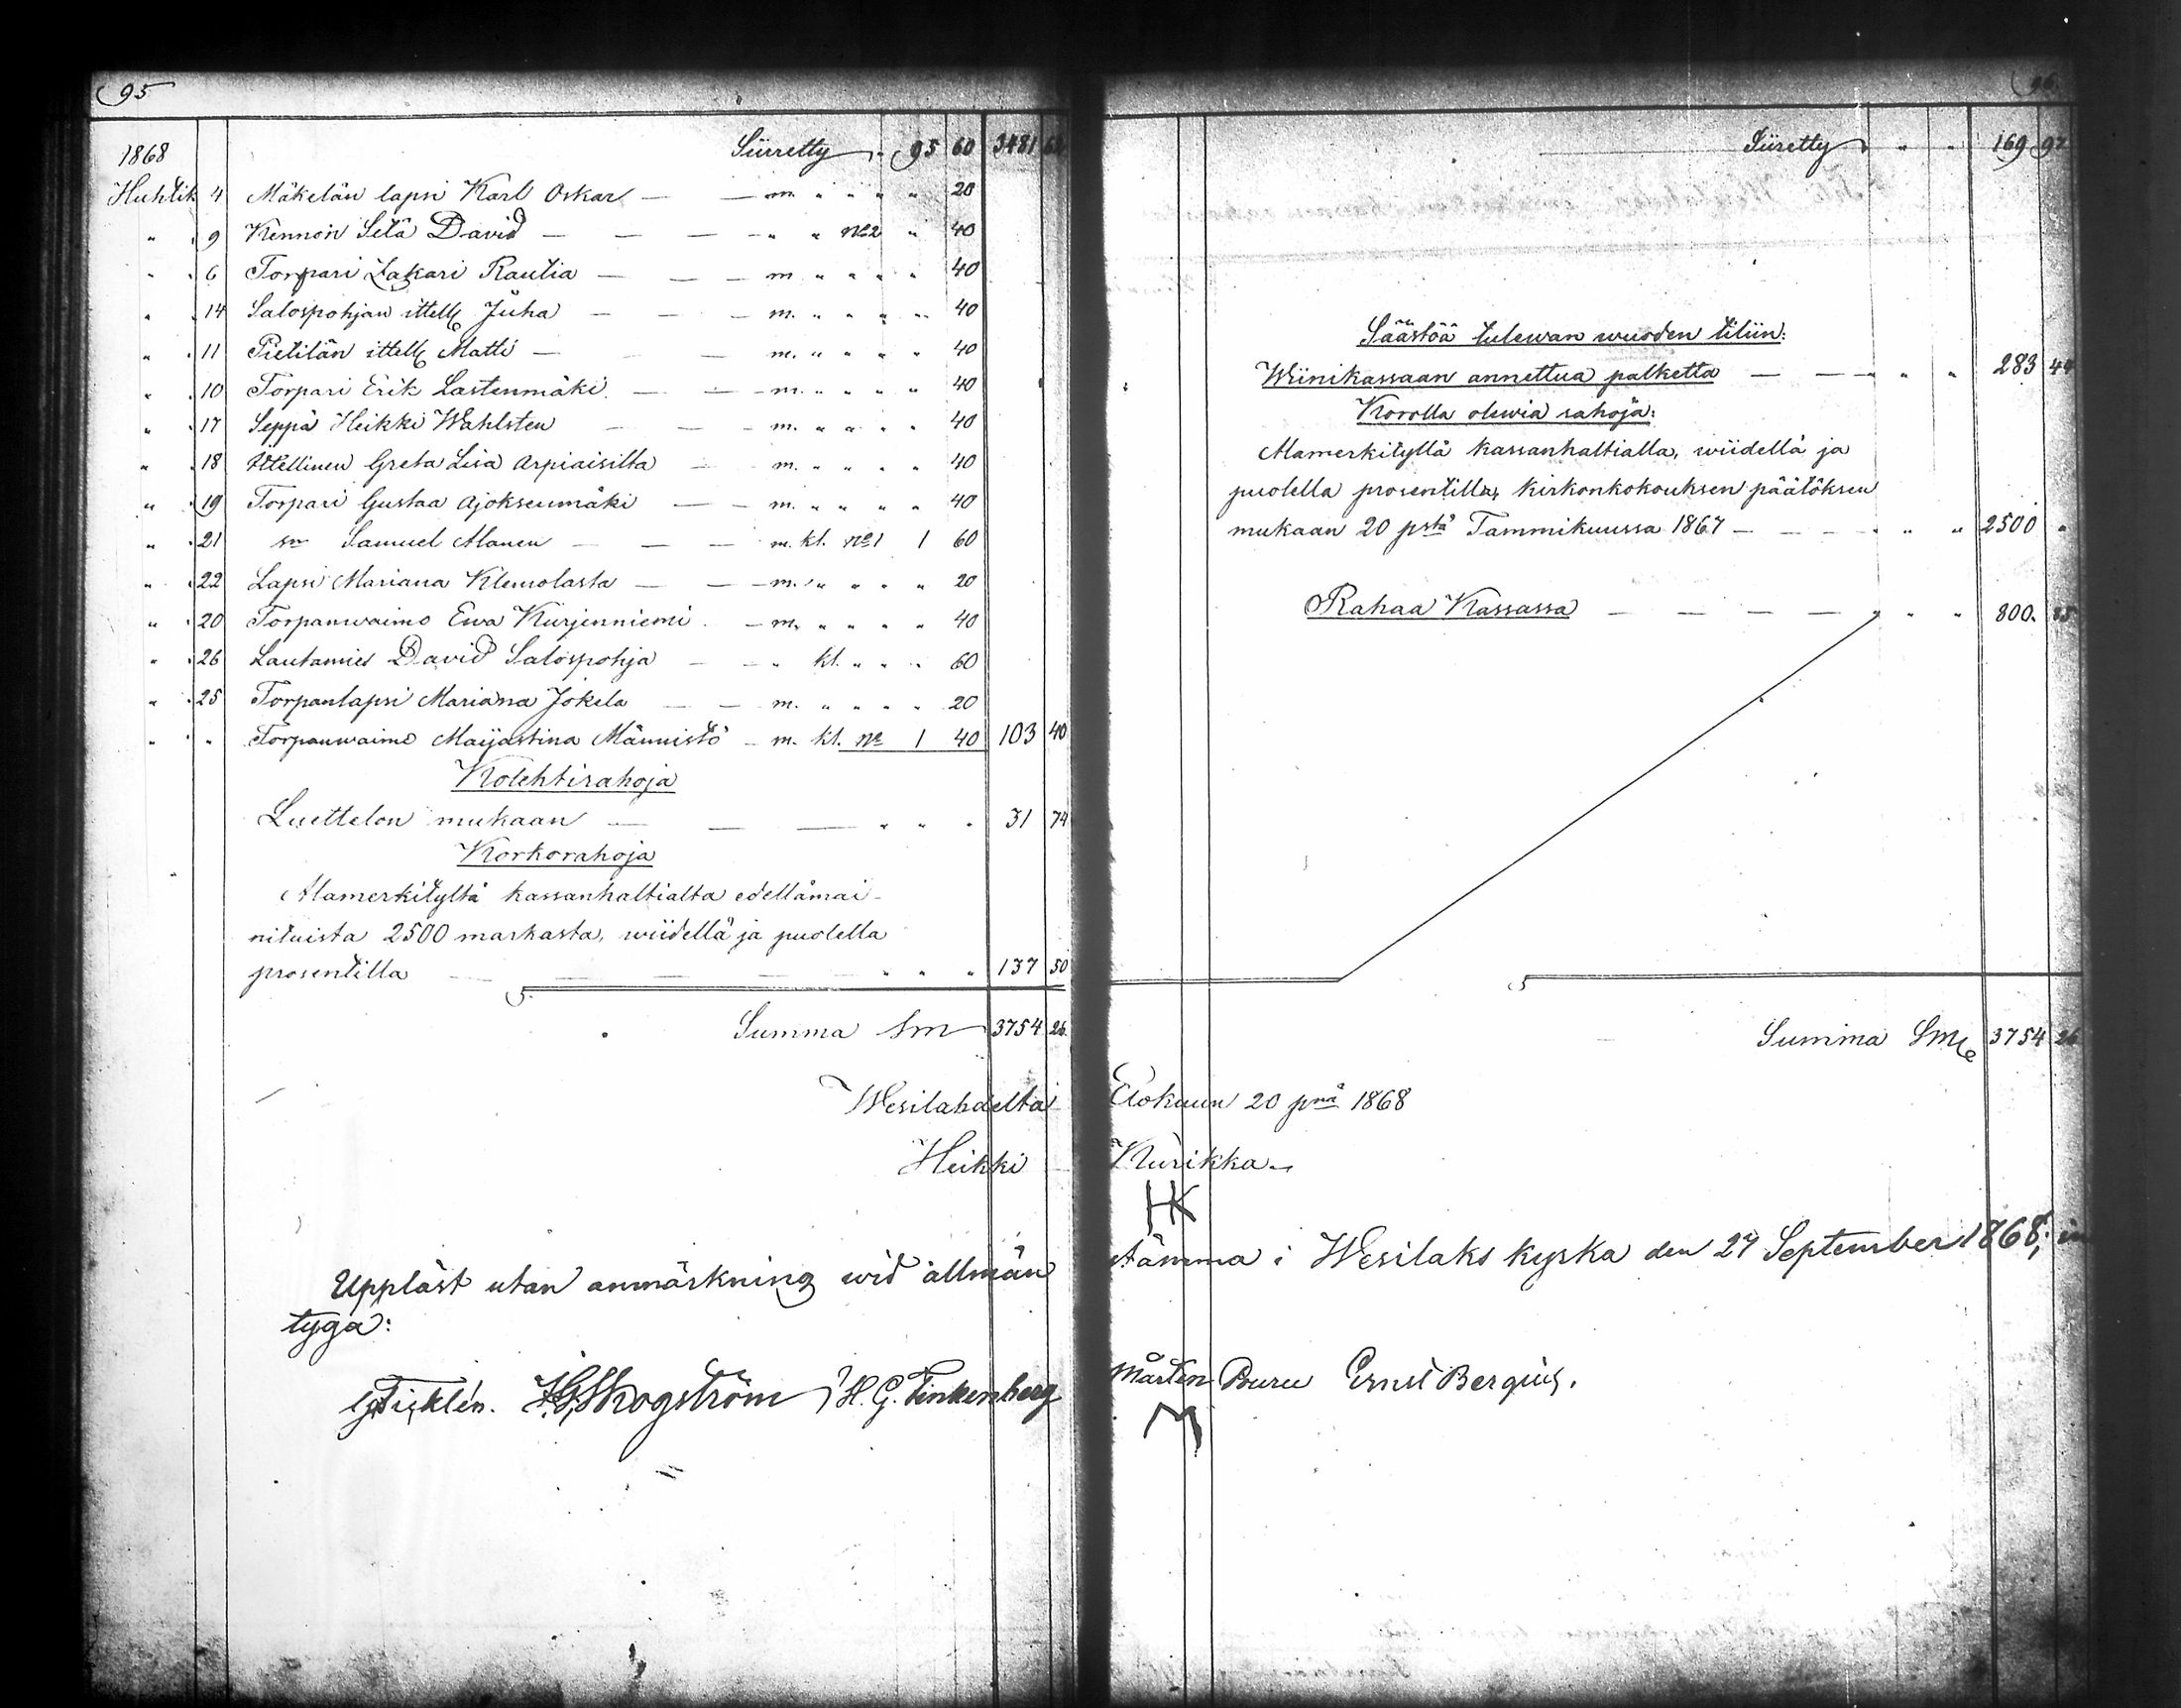 95
1868 Siirretty " 95 60 3481 62
Huhtik 4 Mäkelän lapsi Karl Oskar — — m. " " " " 20
" " 9 Kennon Setä David — — — " " № 2 " 40
" " 6 Torpari Zakari Rautia — — — m " " " " 40
" " 14 Salospohjan ittell Juha — — — m. " " " " 40
" " 11 Pietilän ittell Matti — — m. " " " " 40
" " 10 Torpari Erik Lastenmäki — — — m. " " " " 40
" " 17 Seppä Heikki Wahlsten — — — m. " " " " 40
" " 18 Ittellinen Greta Lisa Arpiaisilta — m. " " " " 40
" " 19 Torpari Gustaa Ajoksenmäki — — m. " " " " 40
" " 21 Samuel Alanen — — — m. kl. № 1 1 60
" " 22 Lapsi Mariana Klemolasta — — m. " " " " 20
" " 20 Torpanwaimo Ewa Kurjenniemi — m. " " " " 40
" " 26 Lautamies David Salospohja — — " kl. " " " 60
" " 25 Torpanlapsi Mariana Jokela — — m. " " " " 20
" " " Torpanwaimo Maijastina Männistö — m. kl. № 1 40 103 40
Kolehtirahoja
Luettelon mukaan — — — " " " 31 74
Korkorahoja
Alamerkityltä kassanhaltialta edellämai-
nituista 2500 markasta, wiidellä ja puolella
prosentilla — — — — — " " " 137 50
Summa Sm 3754 26
Wesilahdelta
Heikki
Uppläst utan anmärkning wid allmän
tyga:
H. G. Skogström H. G. Finkenberg
96
Siiretty " " " 169 97
Säästöä tulewan wuoden tiliin:
Wiinikassaan annettua palketta — — " " " 283 44
Korolla olewia rahoja:
Alamerkityllä kassanhaltialla, wiidellä ja
puolella prosentilla, kirkonkokouksen päätöksen
mukaan 20 pstä Tammikuussa 1867 — — — " " " 2500 "
Rahaa Kassassa — — — — " " " 800. 85
Summa Smk 3754 26
Elokuun 20 pnä 1868
Kurikka
HK
stämma i Wesilaks kyrka den 27 September 1868; in
Mårten Buru Ernst Bergius.
M